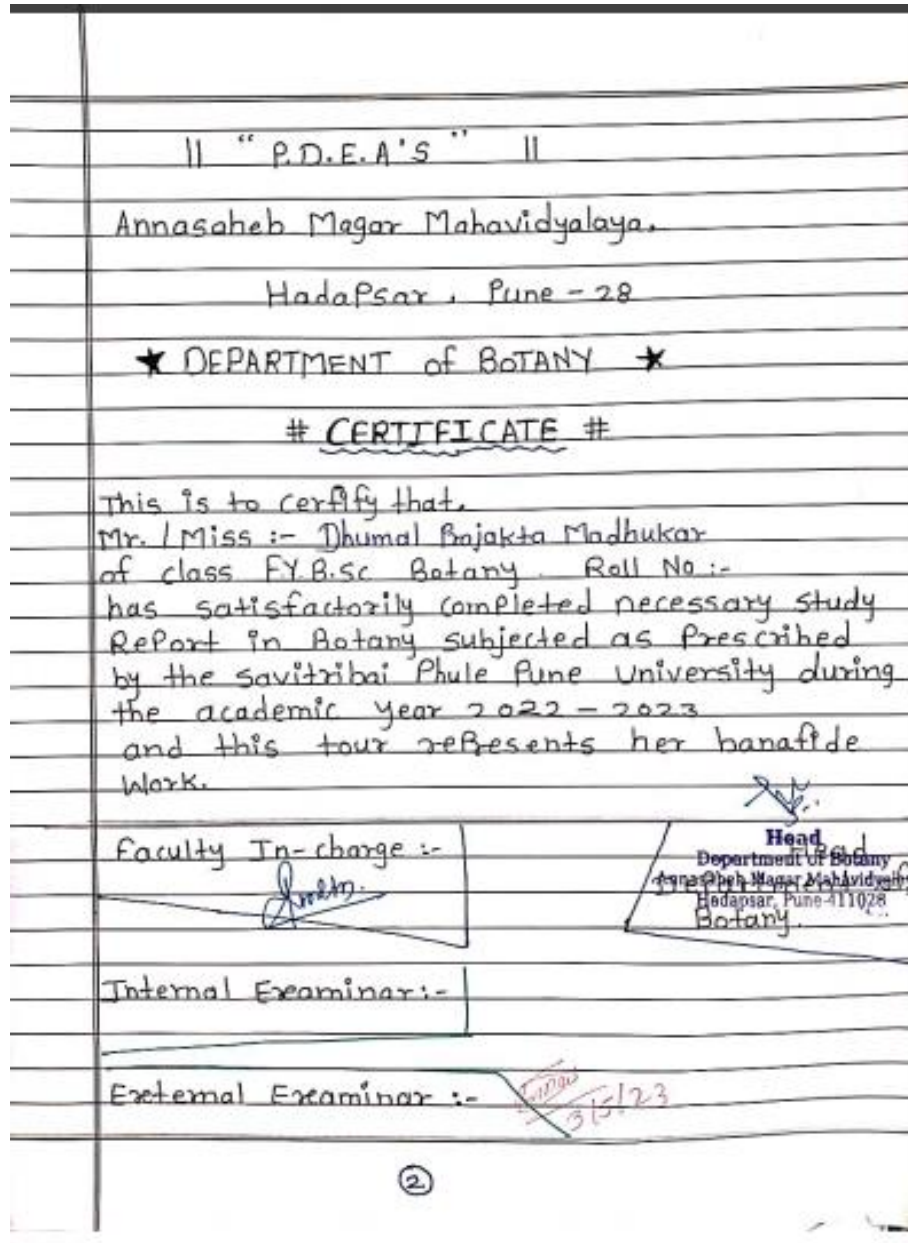 || " P.D.E.A'S " ||
Annasaheb Magar Mahavidyalaya.
Hadapsar, Pune - 28
★ DEPARTMENT of BOTANY ★
# CERTIFICATE #
This is to certify that,
Mr. / Miss :- Dhumal Prajakta Madhukar
of class F.Y.B.Sc Botany. Roll No :-
has satisfactorily completed necessary study
Report in Botany subjected as Prescribed
by the Savitribai Phule Pune University during
the academic year 2022 - 2023
and this tour represents her banafide
Work.
Faculty In-charge :-
Head
Department of
Botany.
Head
Department of Botany
Annasaheb Magar Mahavidyalaya
Hadapsar, Pune-411028
Internal Examinar:-
External Examinar :-
3/5/23
2